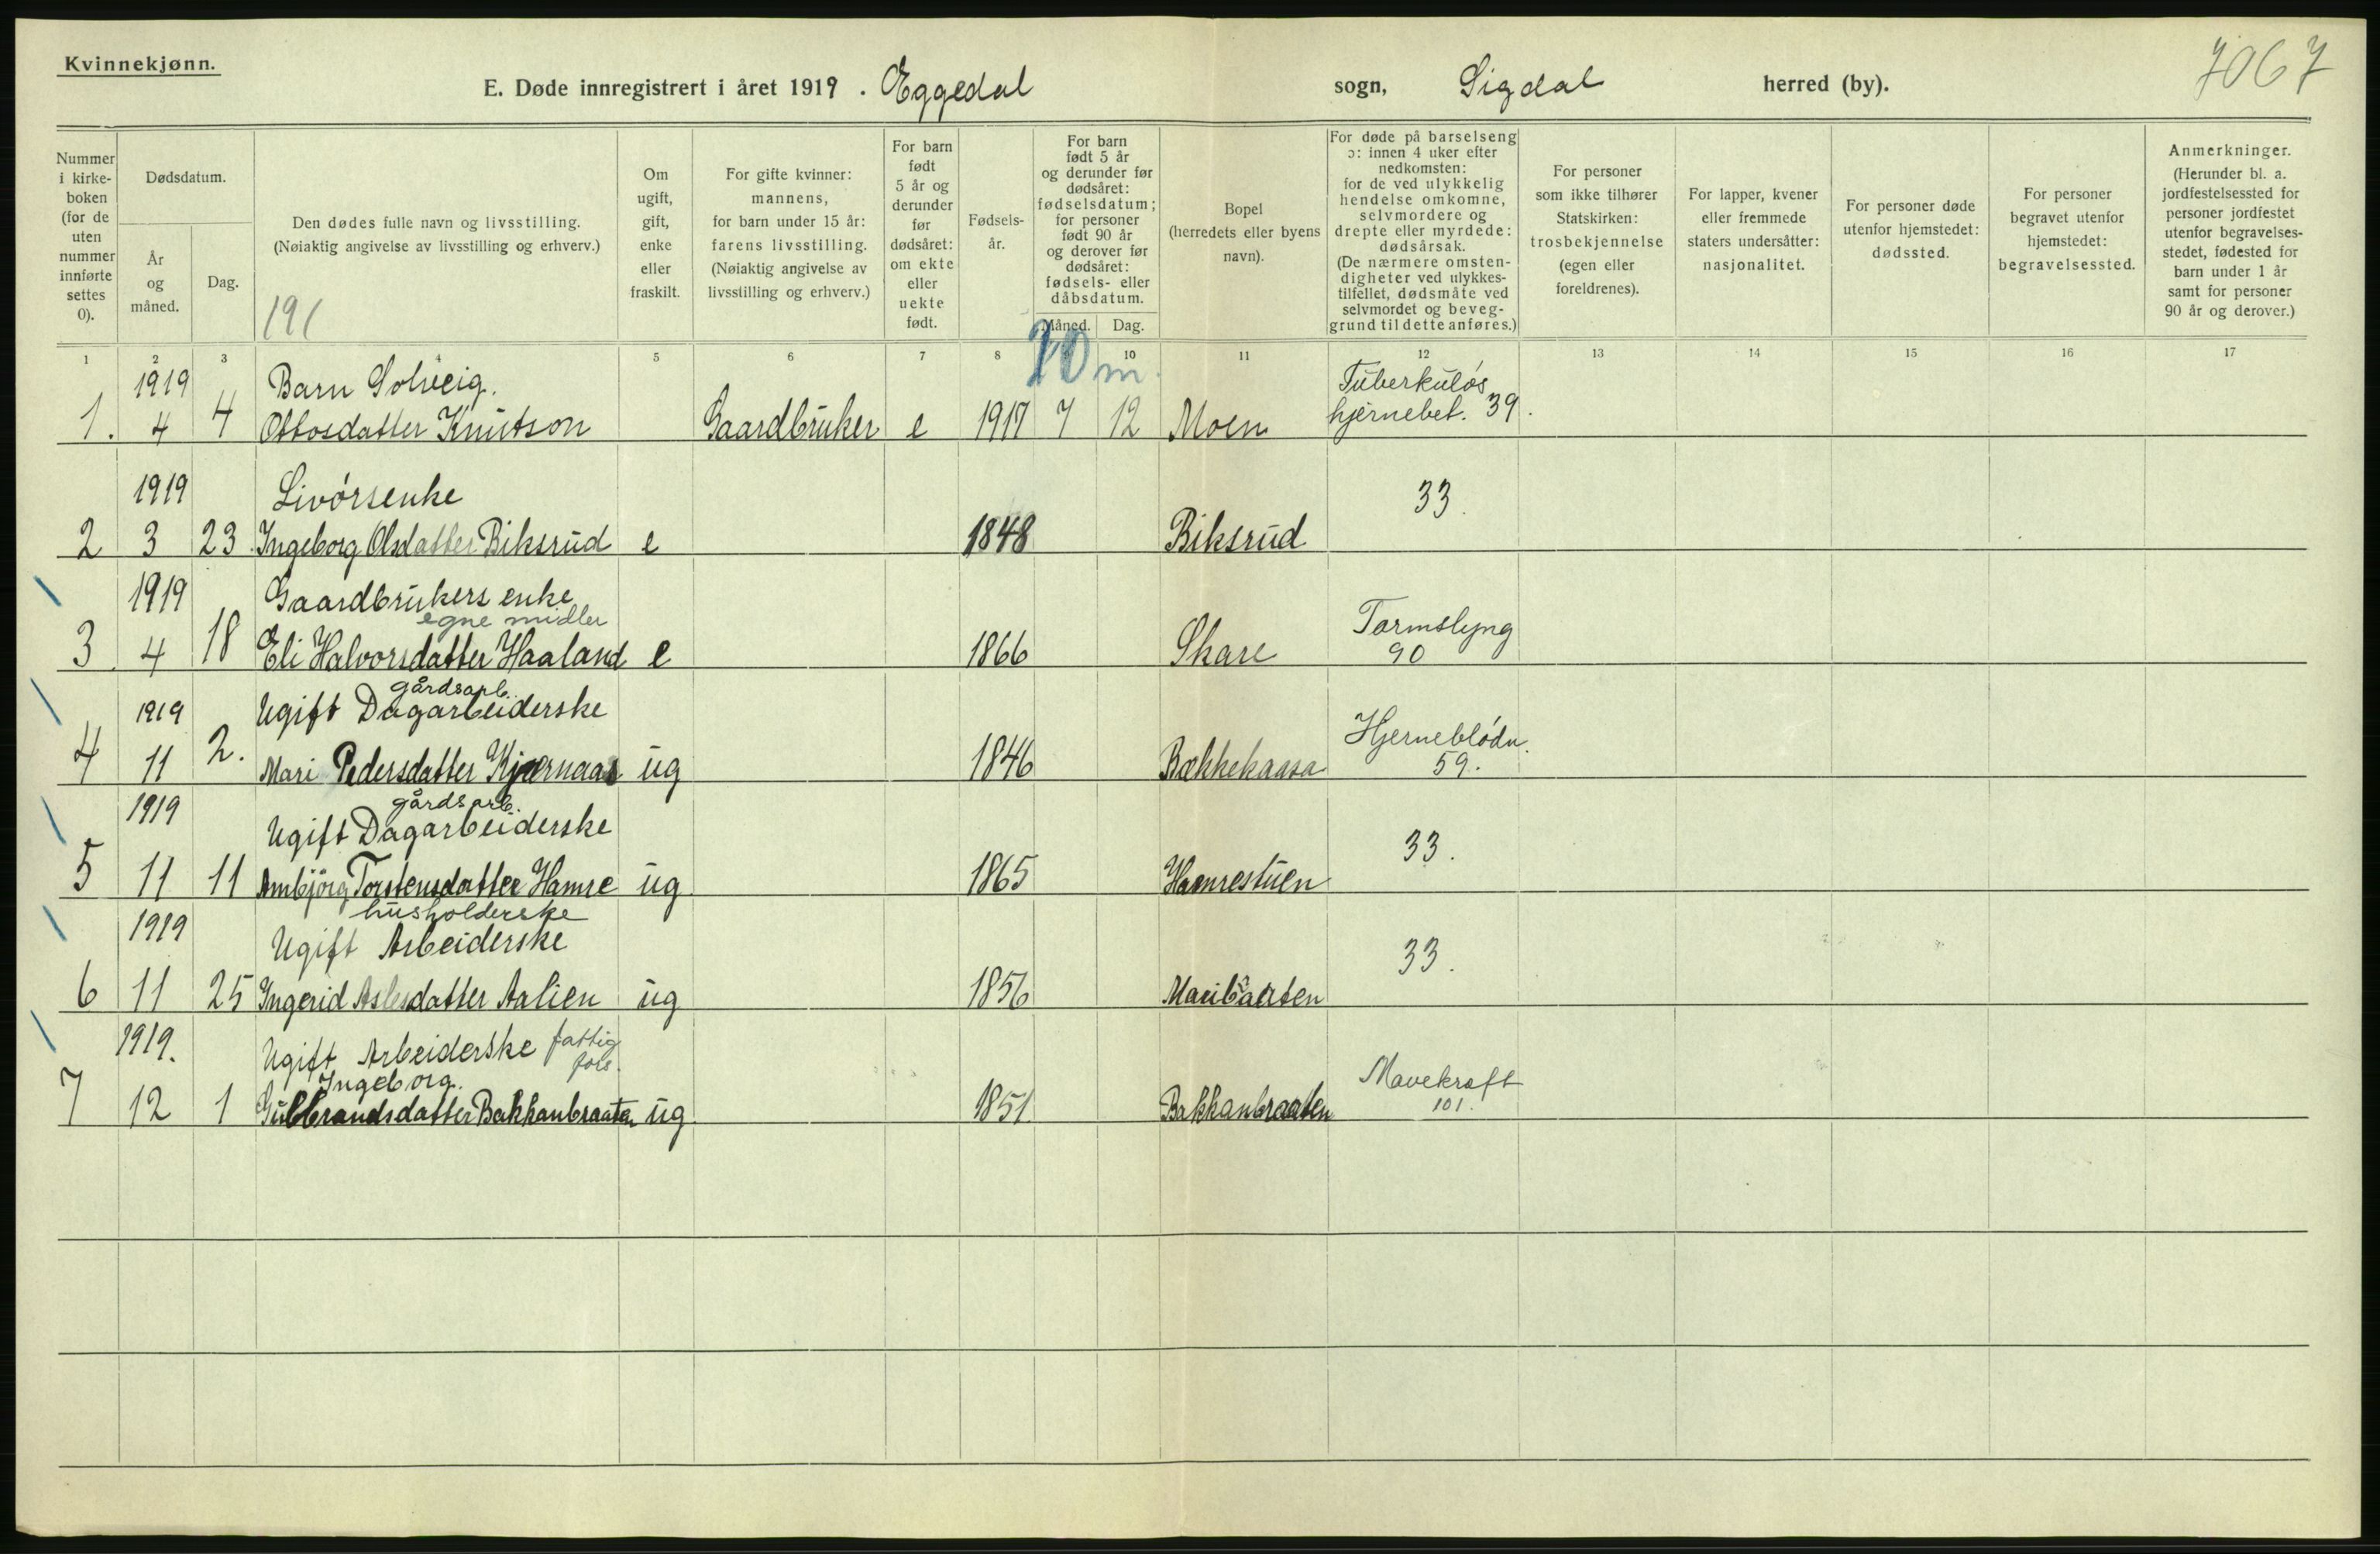 Kvinnekjønn.
7067
E. Døde innregistrert i året 1919. Eggedal sogn, Sigdal herred (by).
Nummer i kirke-boken (for de uten nummer innførte settes 0).
Dødsdatum.
År og måned.
Dag.
Den dødes fulle navn og livsstilling.
(Nøiaktig angivelse av livsstilling og erhverv.)
191
Om ugift, gift, enke eller fraskilt.
For gifte kvinner: mannens, for barn under 15 år: farens livsstilling. (Nøiaktig angivelse av livsstilling og erhverv.)
For barn født 5 år og derunder før dødsåret: om ekte eller uekte født.
Fødsels-år.
For barn født 5 år og derunder før dødsåret: fødselsdatum; for personer født 90 år og derover før dødsåret: fødsels- eller dåbsdatum.
Måned.
Dag.
Bopel (herredets eller byens navn).
For døde på barselseng ɔ: innen 4 uker efter nedkomsten: for de ved ulykkelig hendelse omkomne, selvmordere og drepte eller myrdede: dødsårsak. (De nærmere omsten-digheter ved ulykkes-tilfellet, dødsmåte ved selvmordet og beveg-grund til dette anføres.)
For personer som ikke tilhører Statskirken: trosbekjennelse (egen eller foreldrenes).
For lapper, kvener eller fremmede staters undersåtter: nasjonalitet.
For personer døde utenfor hjemstedet: dødssted.
For personer begravet utenfor hjemstedet: begravelsessted.
Anmerkninger. (Herunder bl. a. jordfestelsessted for personer jordfestet utenfor begravelses-stedet, fødested for barn under 1 år samt for personer 90 år og derover.)
1 2 3 4 5 6 7 8 10 11 12 13 14 15 16 17
20 m.
1919 Barn Solveig. Tuberkuløs
1. 4 4 Ottosdatter Knutson Gaardbruker e 1917 7 12 Moen hjernebet. 39.
1919 Livørsenke 33.
2 3 23 Ingeborg Olsdatter Biksrud e 1848 Biksrud
1919 Gaardbrukers enke
egne midler Tarmslyng
3 4 18 Eli Halvorsdatter Haaland e 1866 Skare 90
gårdsarb.
1919 Ugift Dagarbeiderske Hjerneblødn.
4 11 2. Mari Pedersdatter Kjærnaas ug 1846 Bækkekaasa 59.
gårdsarb.
1919 Ugift Dagarbeiderske 33.
5 11 11 Ambjörg Torstensdatter Hamre ug 1865 Hamrestuen
husholderske
1919 Ugift Arbeiderske 33.
6 11 25 Ingerid Aslesdatter Aalien ug 1856 Maribraaten
1919. Ugift Arbeiderske fattig
fors.
Ingeborg. Mavekræft
7 12 1 Gulbrandsdatter Bakkanbraaten ug 1851 Bakkanbraaten 101.